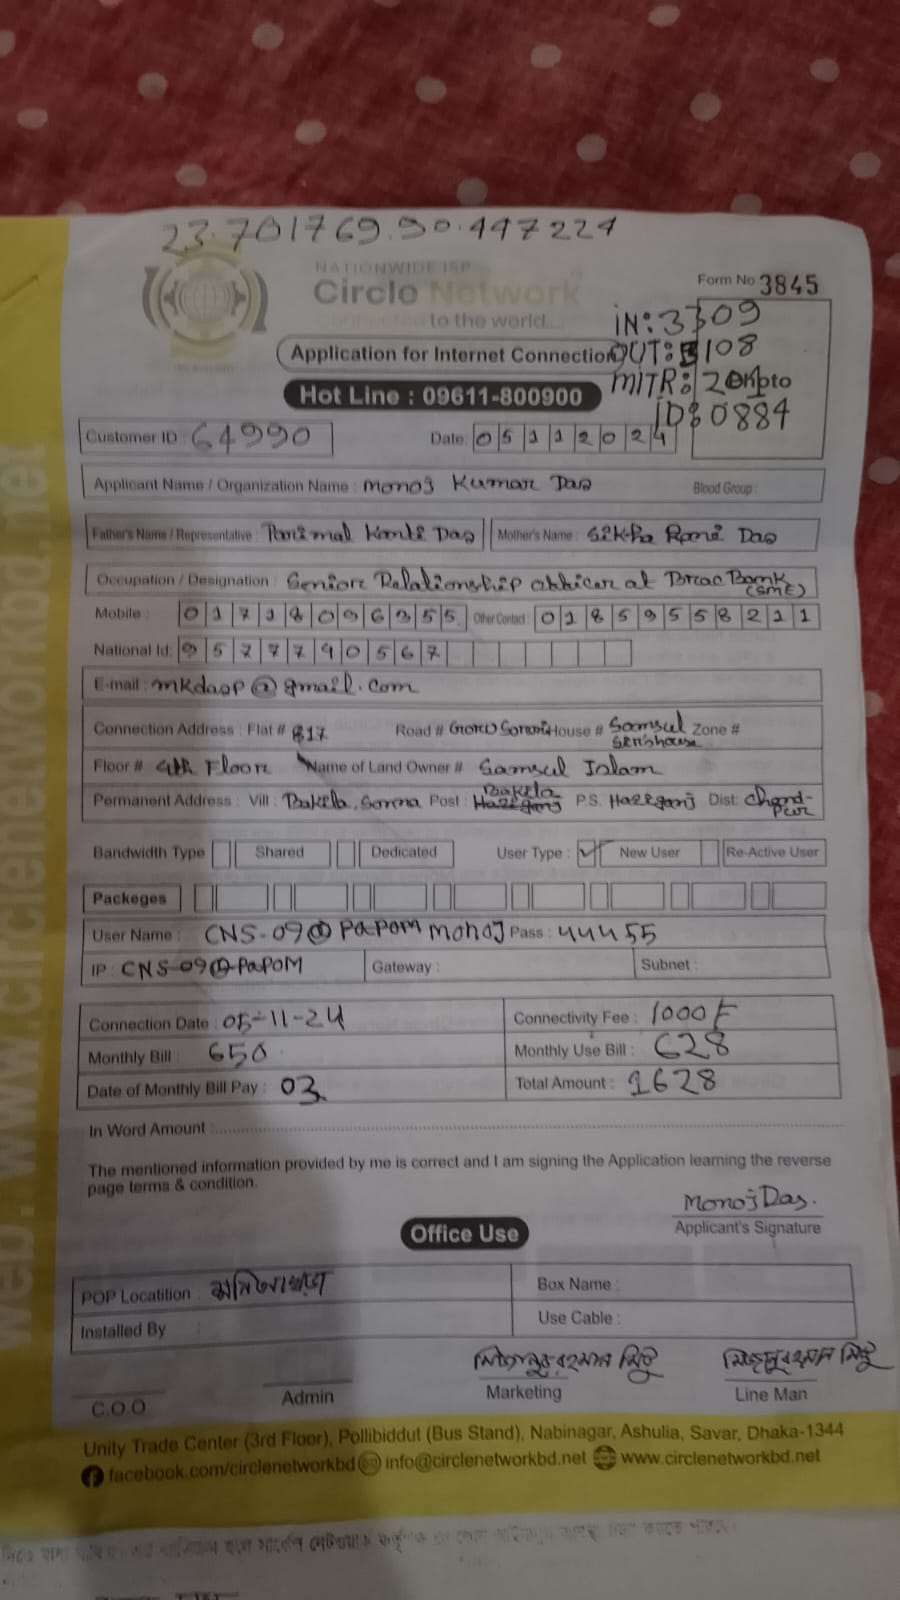 23.701769.90.447224
NATIONWIDE ISP
Circle Network
Connected to the world...
Form No 3845
Application for Internet Connection
Hot Line : 09611-800900
IN: 3309
OUT: 3108
MITR: 201
ID: 0884
Customer ID : 64990
Date: 05112024
Applicant Name / Organization Name : Monoj Kumar Das
Blood Group :
Father's Name / Representative : Parimal Kanti Das
Mother's Name : Sikha Rani Das
Occupation / Designation : Senior Relationship officer at Brac Bank (SME)
Mobile : 01718096355 Other Contact : 01859558211
National Id: 9577740567
E-mail : mkdasp@gmail.com
Connection Address : Flat # B17 Road # House # Samsul Zone #
Floor # 4th Floor Name of Land Owner # Samsul Islam
Permanent Address : Vill : Bakila, Post : Bakila P.S. Hazeganj Dist: Chandpur
Bandwidth Type Shared Dedicated User Type : ✓ New User Re-Active User
Packeges
User Name : CNS-09@PAPOM monoj Pass : 44455
IP : CNS-09@PAPOM Gateway : Subnet :
Connection Date : 05-11-24 Connectivity Fee : 1000
Monthly Bill : 650 Monthly Use Bill : 628
Date of Monthly Bill Pay : 03 Total Amount : 1628
In Word Amount :
The mentioned information provided by me is correct and I am signing the Application learning the reverse
page terms & condition.
Monoj Das.
Applicant's Signature
Office Use
POP Locatition : Box Name :
Installed By : Use Cable :
C.O.O Admin Marketing Line Man
Unity Trade Center (3rd Floor), Pollibiddut (Bus Stand), Nabinagar, Ashulia, Savar, Dhaka-1344
facebook.com/circlenetworkbd info@circlenetworkbd.net www.circlenetworkbd.net
web: www.circlenetworkbd.net